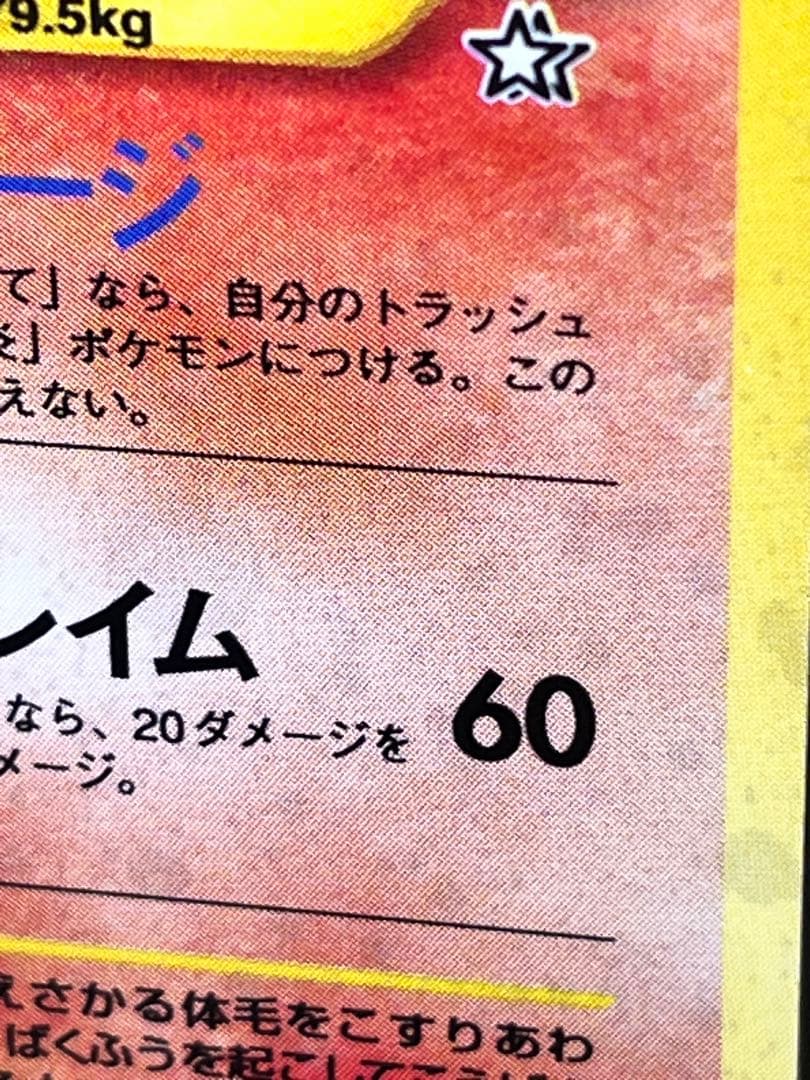 79.5kg
ージ
て」なら、自分のトラッシュ
炎」ポケモンにつける。この
えない。
レイム
60
なら、20ダメージを
メージ。
えさかる体毛をこすりあわ
ばくふうを起こしてこうげ